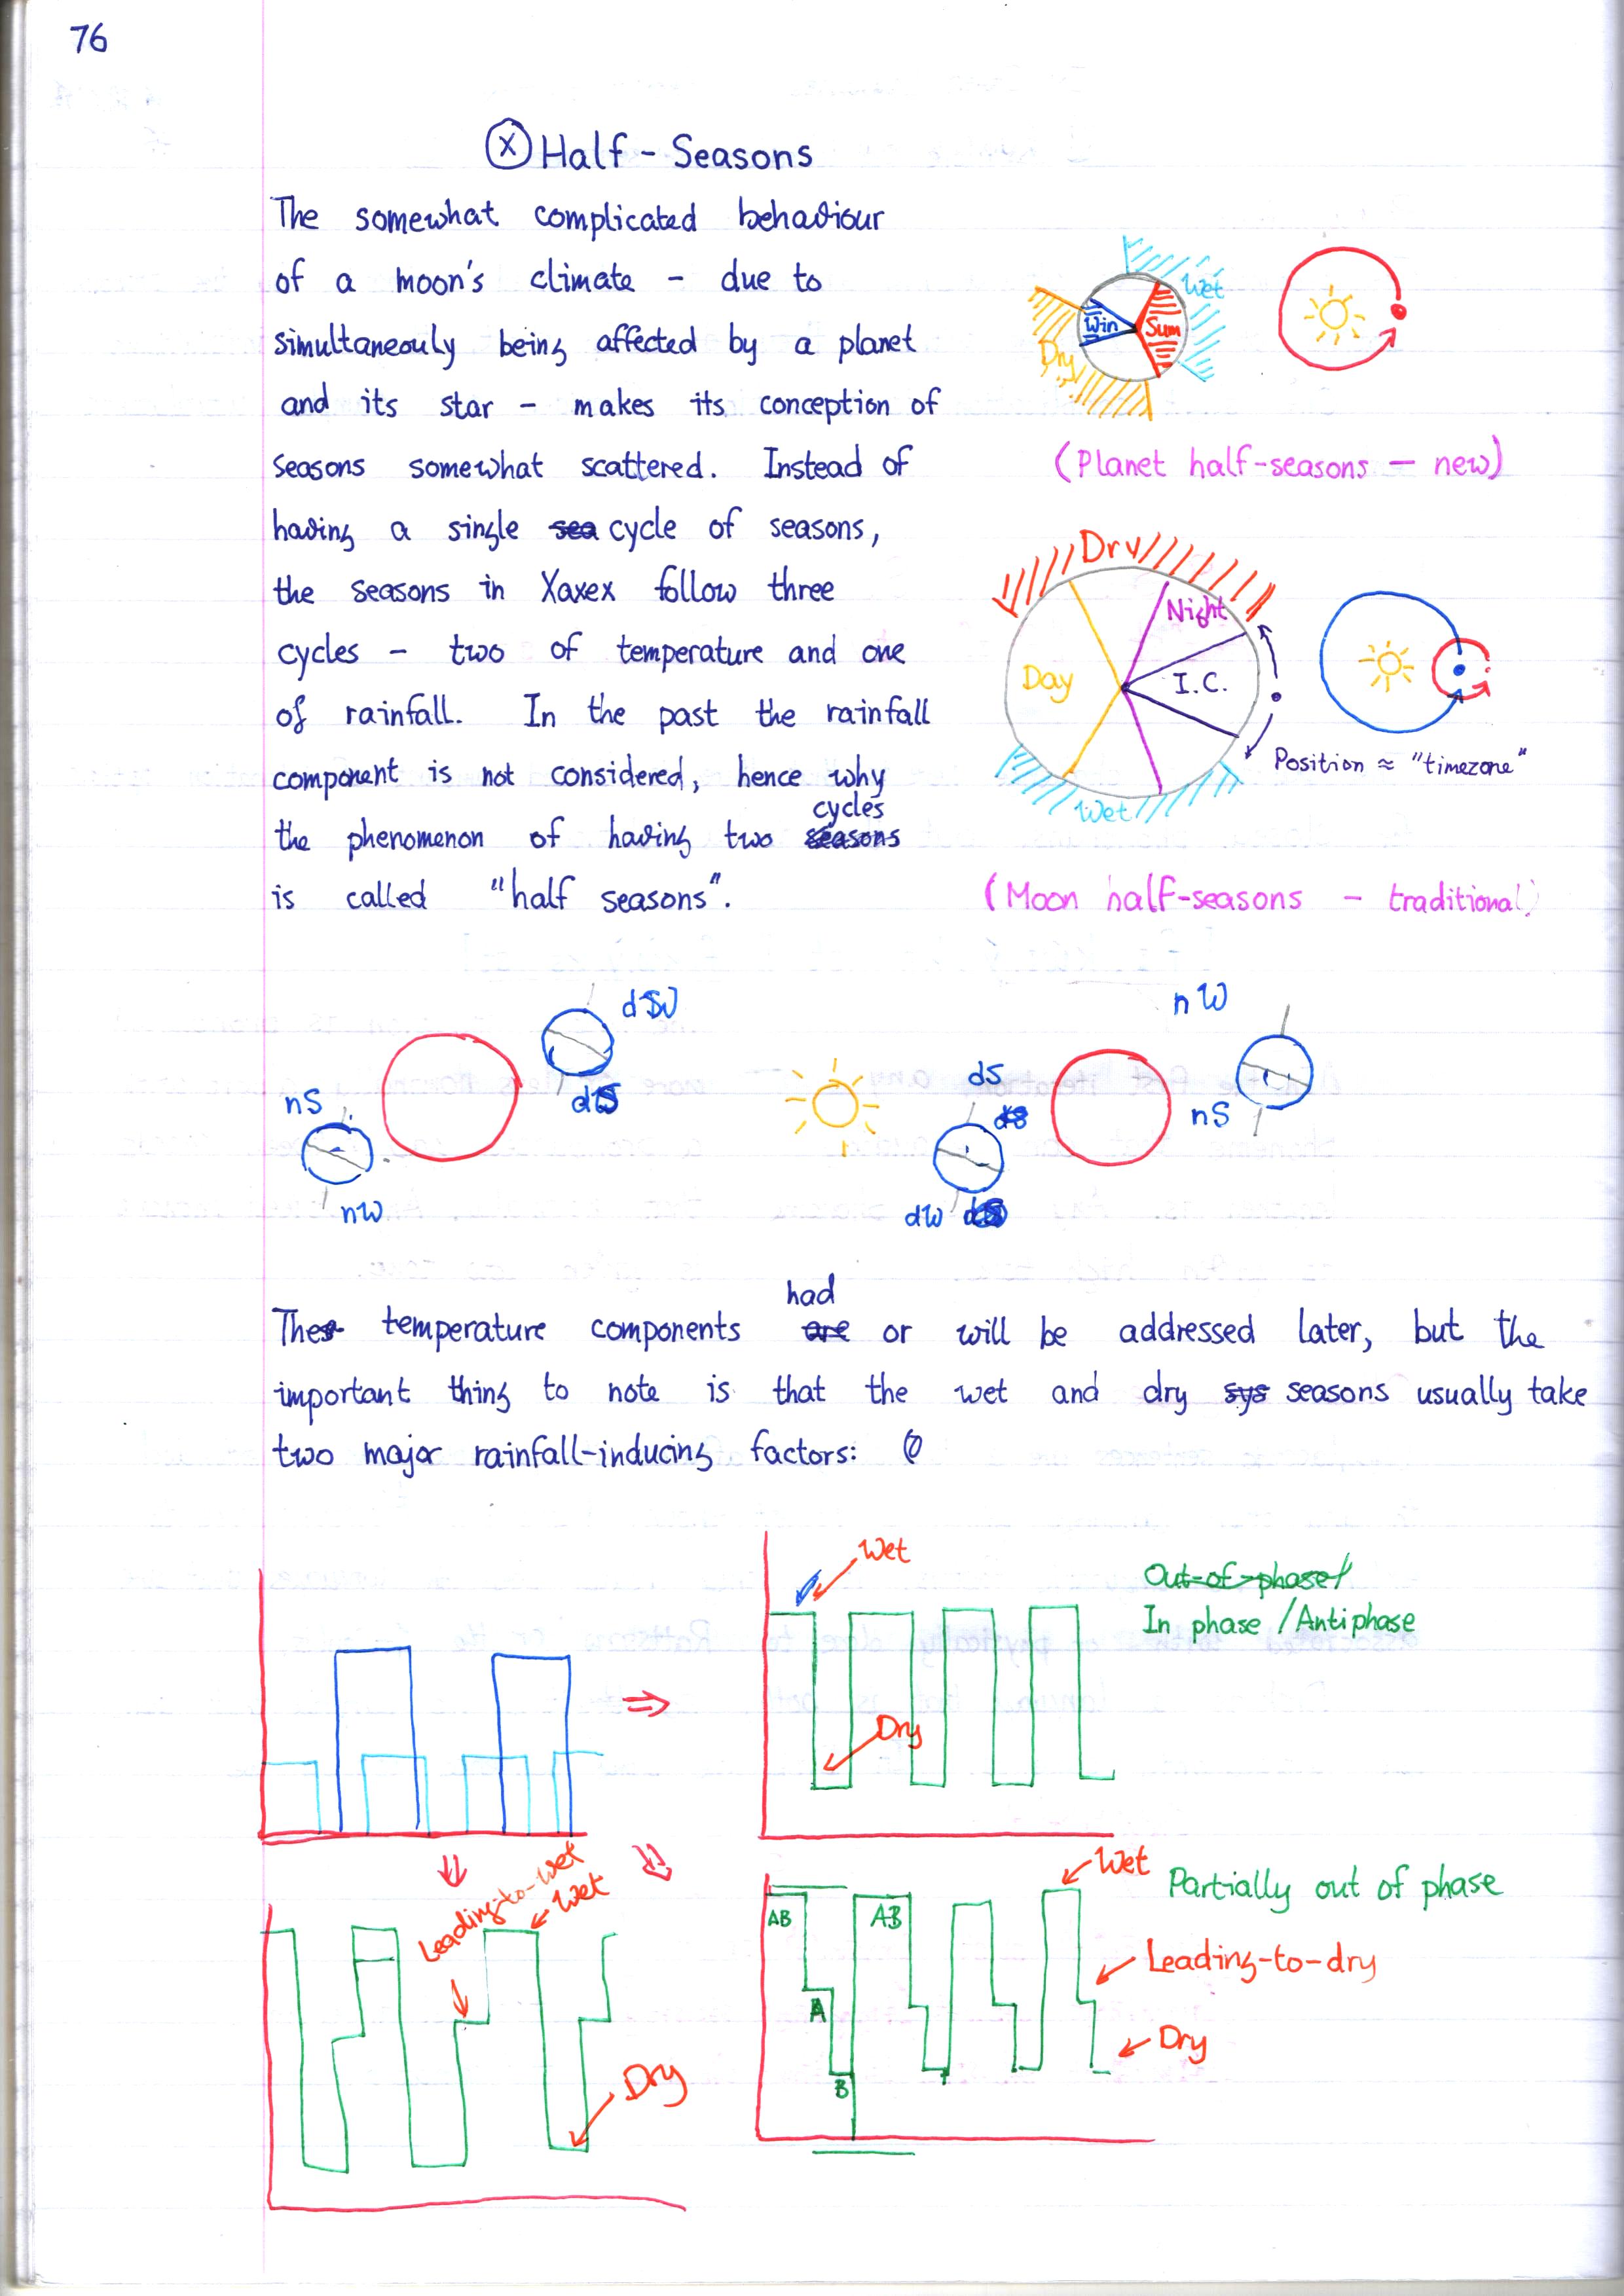 76
Ⓧ Half - Seasons
The somewhat complicated behaviour
of a moon's climate - due to
simultaneouly being affected by a planet
and its star - makes its conception of
seasons somewhat scattered. Instead of
having a single sea cycle of seasons,
the seasons in Xaxex follow three
cycles - two of temperature and one
of rainfall. In the past the rainfall
component is not considered, hence why
cycles
the phenomenon of having two seasons
is called "half seasons".
Wet
Win Sum
Dry
(Planet half-seasons - new)
Dry
Night
Day
I.C.
Position ≈ "timezone"
Wet
(Moon half-seasons - traditional)
nS
nW
dW
dS
dS
dW
nW
nS
had
The temperature components are or will be addressed later, but the
important thing to note is that the wet and dry sys seasons usually take
two major rainfall-inducing factors:
Wet
Dry
Out-of-phase/
In phase / Antiphase
Leading-to-wet
Wet
Dry
Wet
Partially out of phase
AB
AB
Leading-to-dry
A
Dry
B